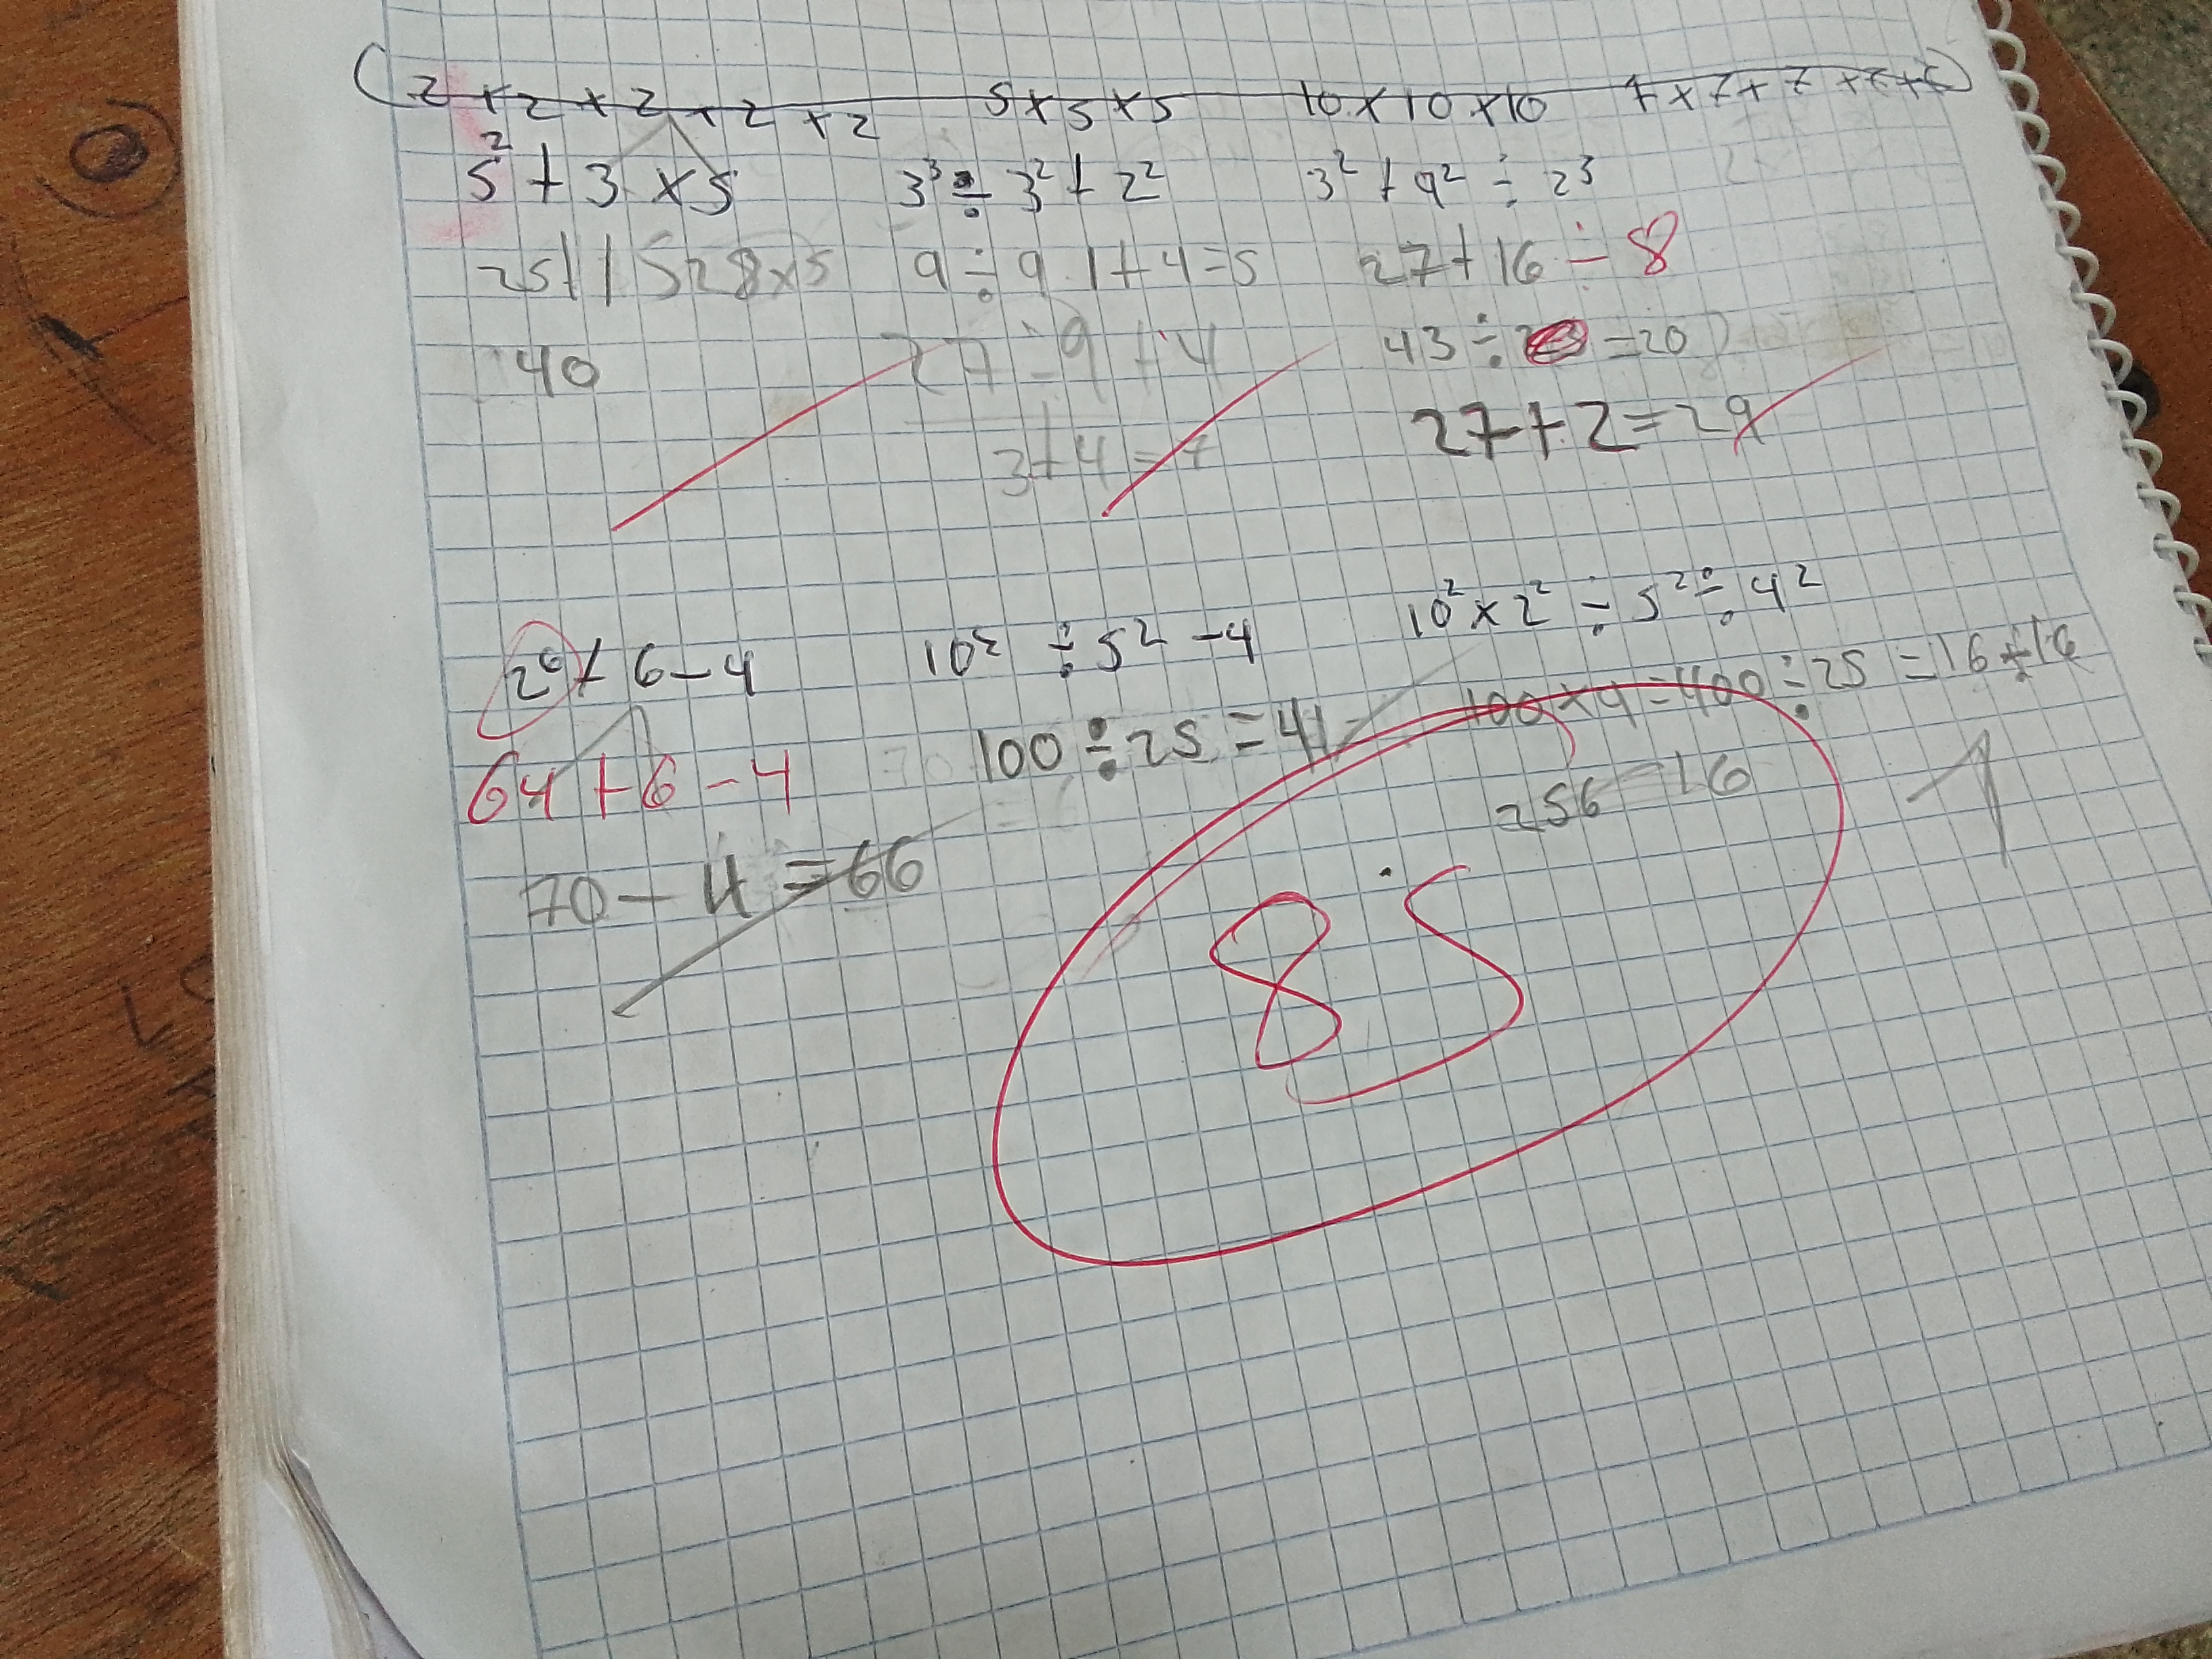 (2 × 2 × 2 × 2 × 2 5 × 5 × 5 10 × 10 × 10 7 × 7 × 7 × 7 ×
5² + 3 × 5 3³ ÷ 3² + 2² 3² + 4² ÷ 2³
25 + 15 28 × 5 9 ÷ 9 1 + 4 = 5 27 + 16 ÷ 8
40 27 ÷ 9 + 4 43 ÷ = 20
3 + 4 = 7 27 + 2 = 29
2⁶ + 6 - 4 10² ÷ 5² - 4 10² × 2² ÷ 5² ÷ 4²
64 + 6 - 4 100 ÷ 25 = 4 100 × 4 = 400 ÷ 25 = 16 ÷ 16
70 - 4 = 66 256 16 1
85